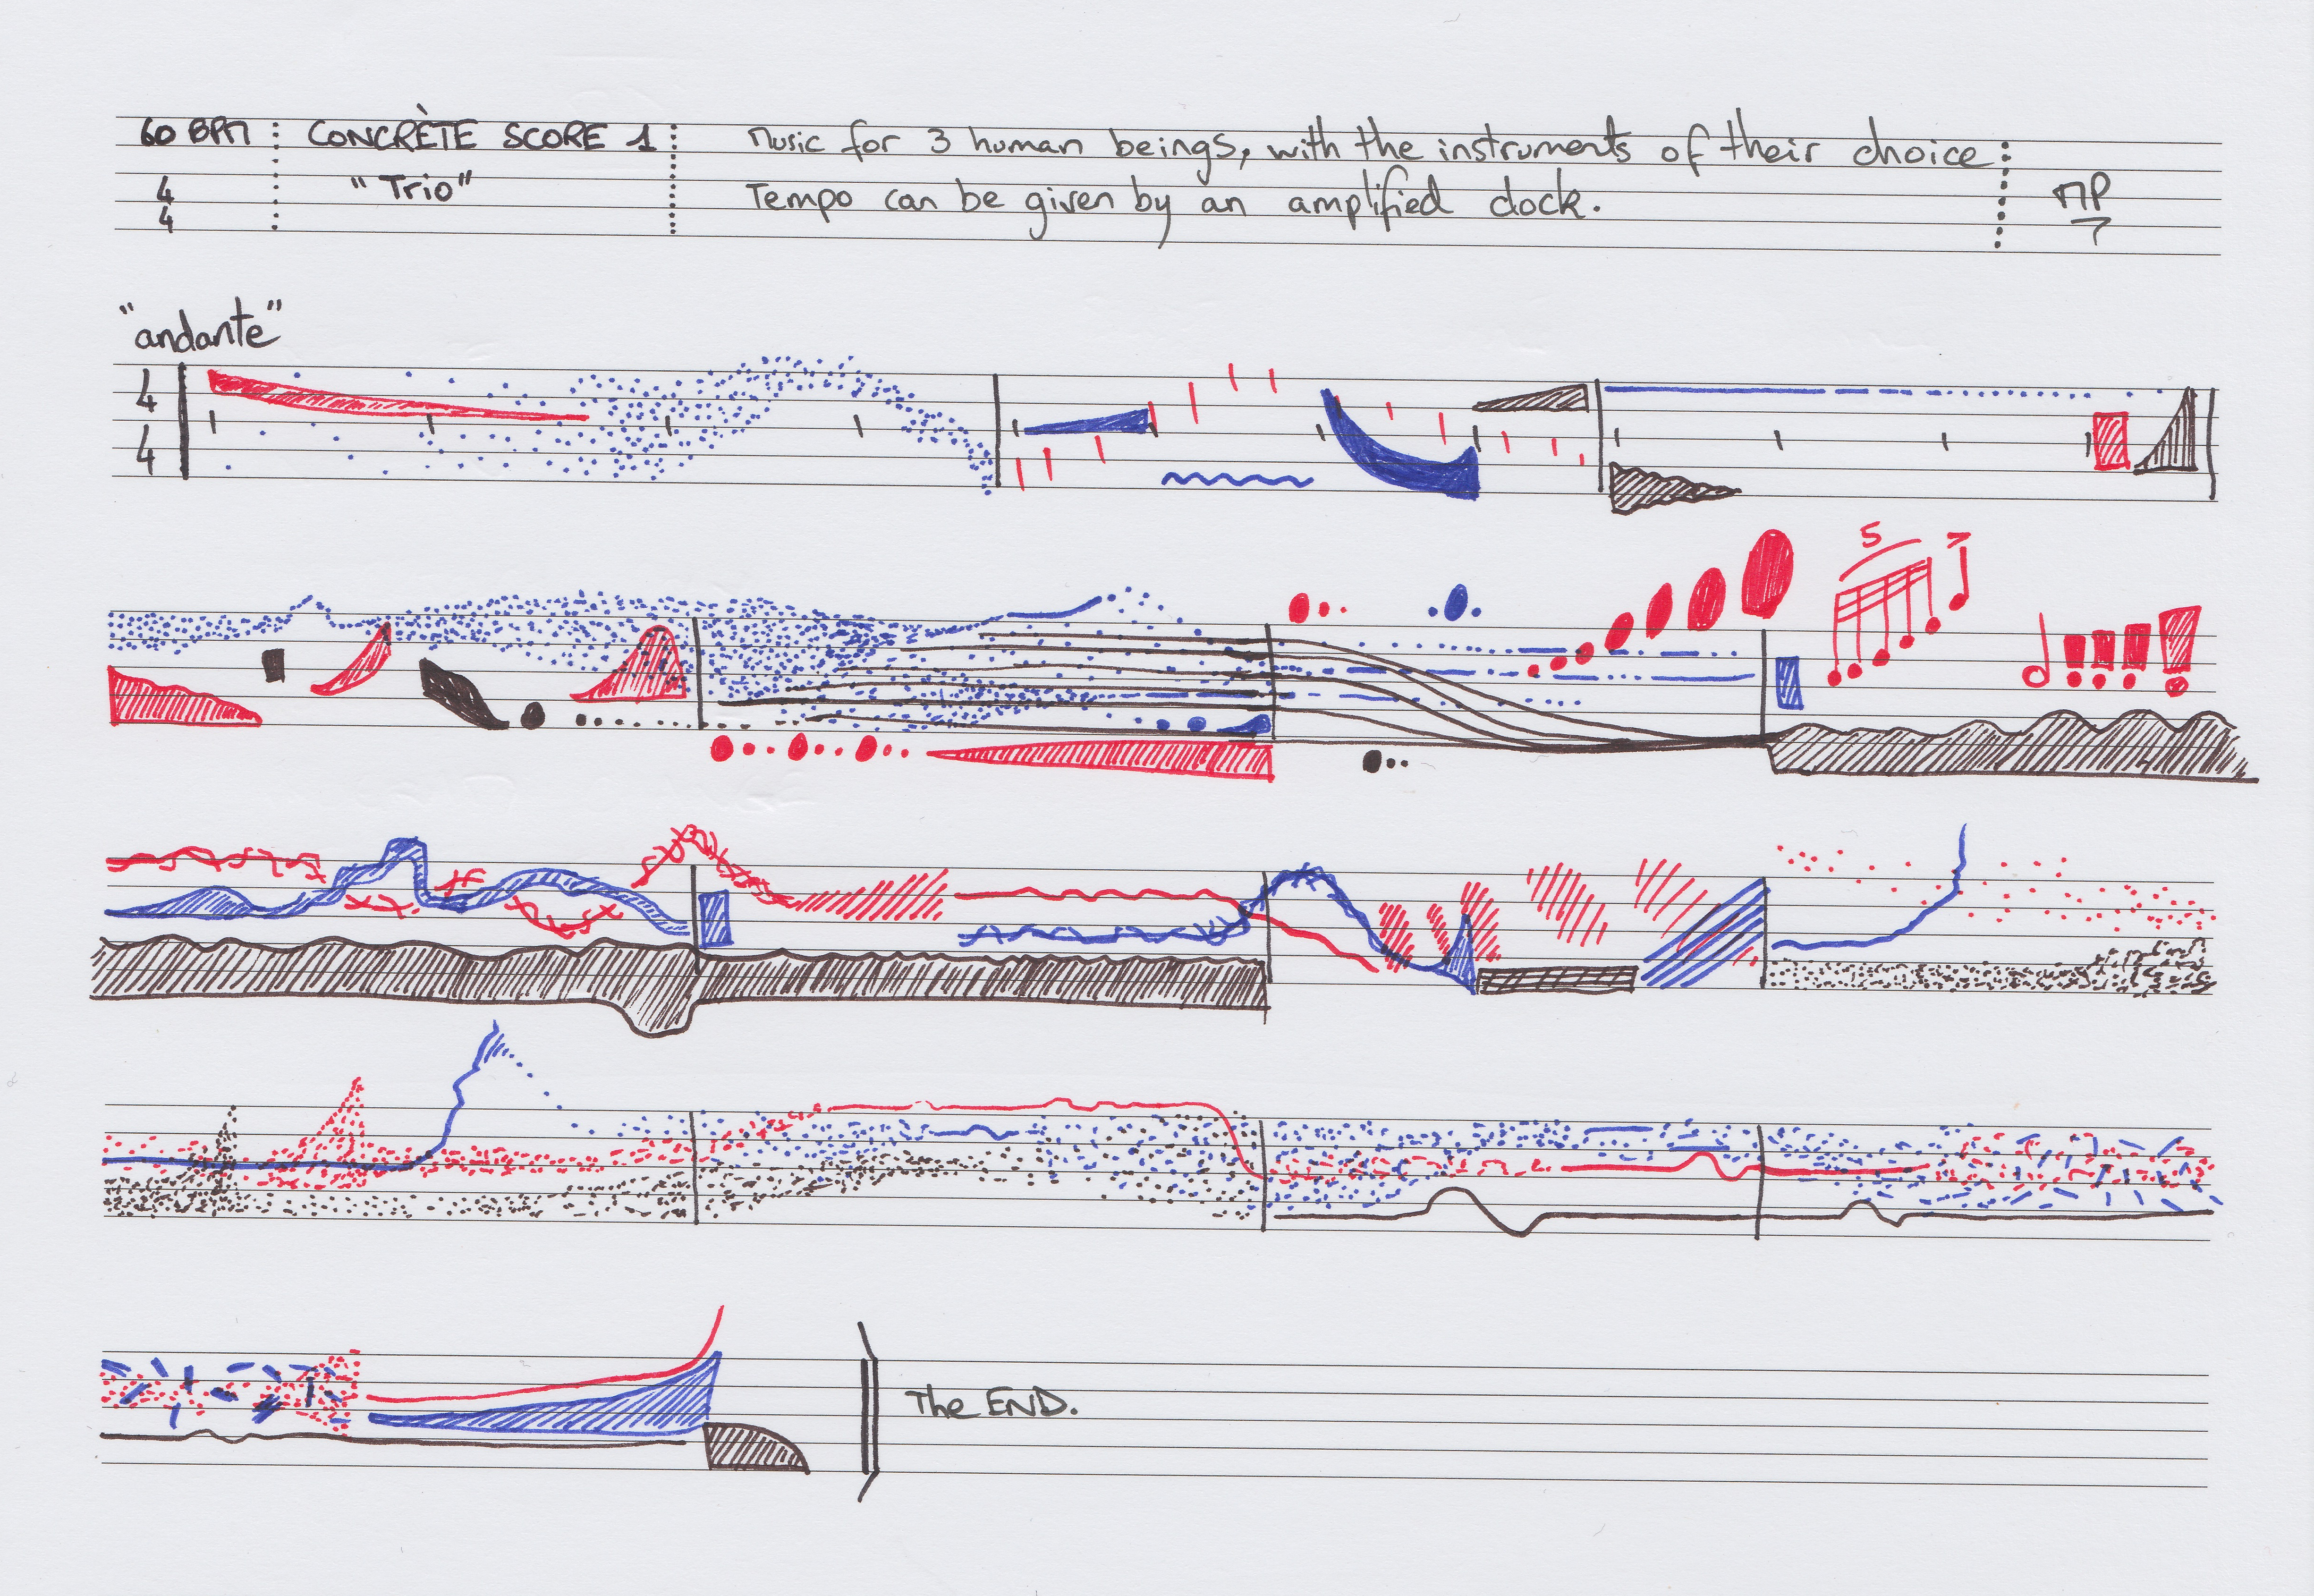 60 BPM
CONCRÈTE SCORE 1
Music for 3 human beings, with the instruments of their choice
4
4
"Trio"
Tempo can be given by an amplified clock.
MP
"andante"
4
4
5
The END.